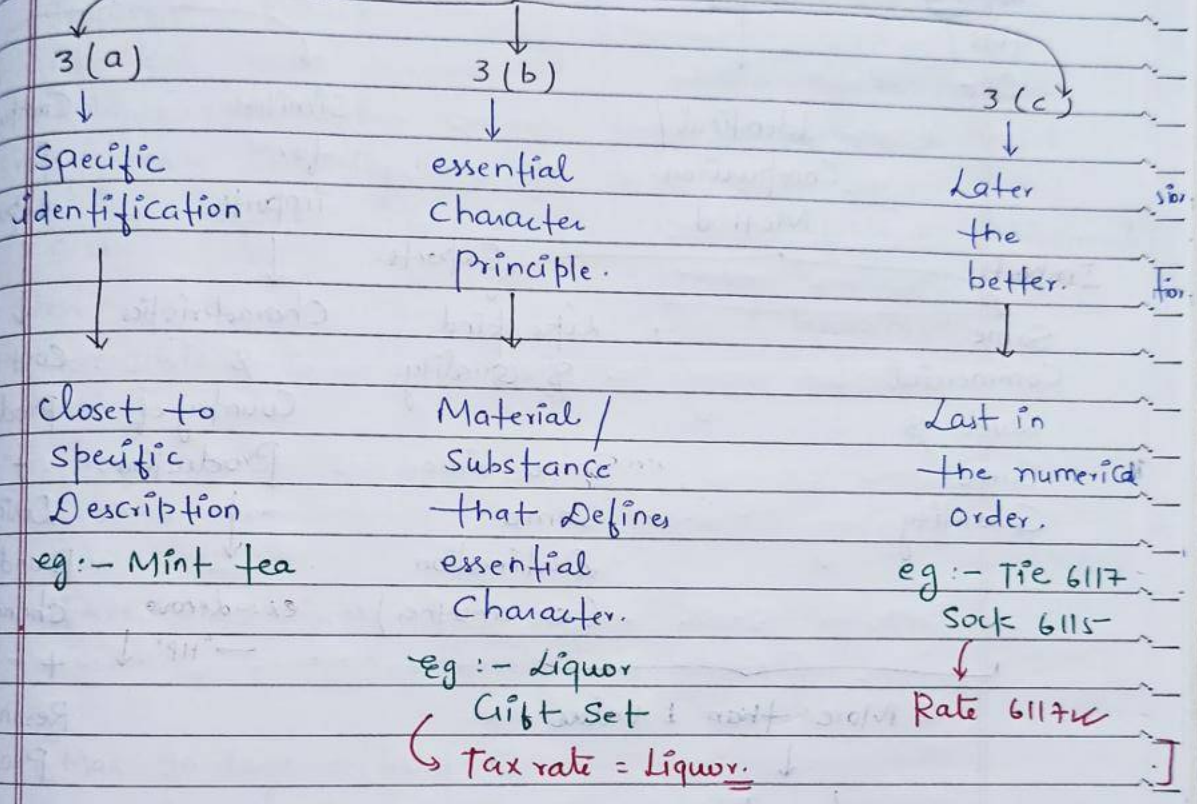 3(a)
Specific
identification
Closet to
Specific
Description
eg:- Mint tea
3(b)
essential
Character
principle.
Material /
Substance
that Defines
essential
Character.
eg:- Liquor
Gift Set
Tax rate = Liquor.
3(c)
Later
the
better.
Last in
the numerical
order.
eg:- Tie 6117
Sock 6115
Rate 6117